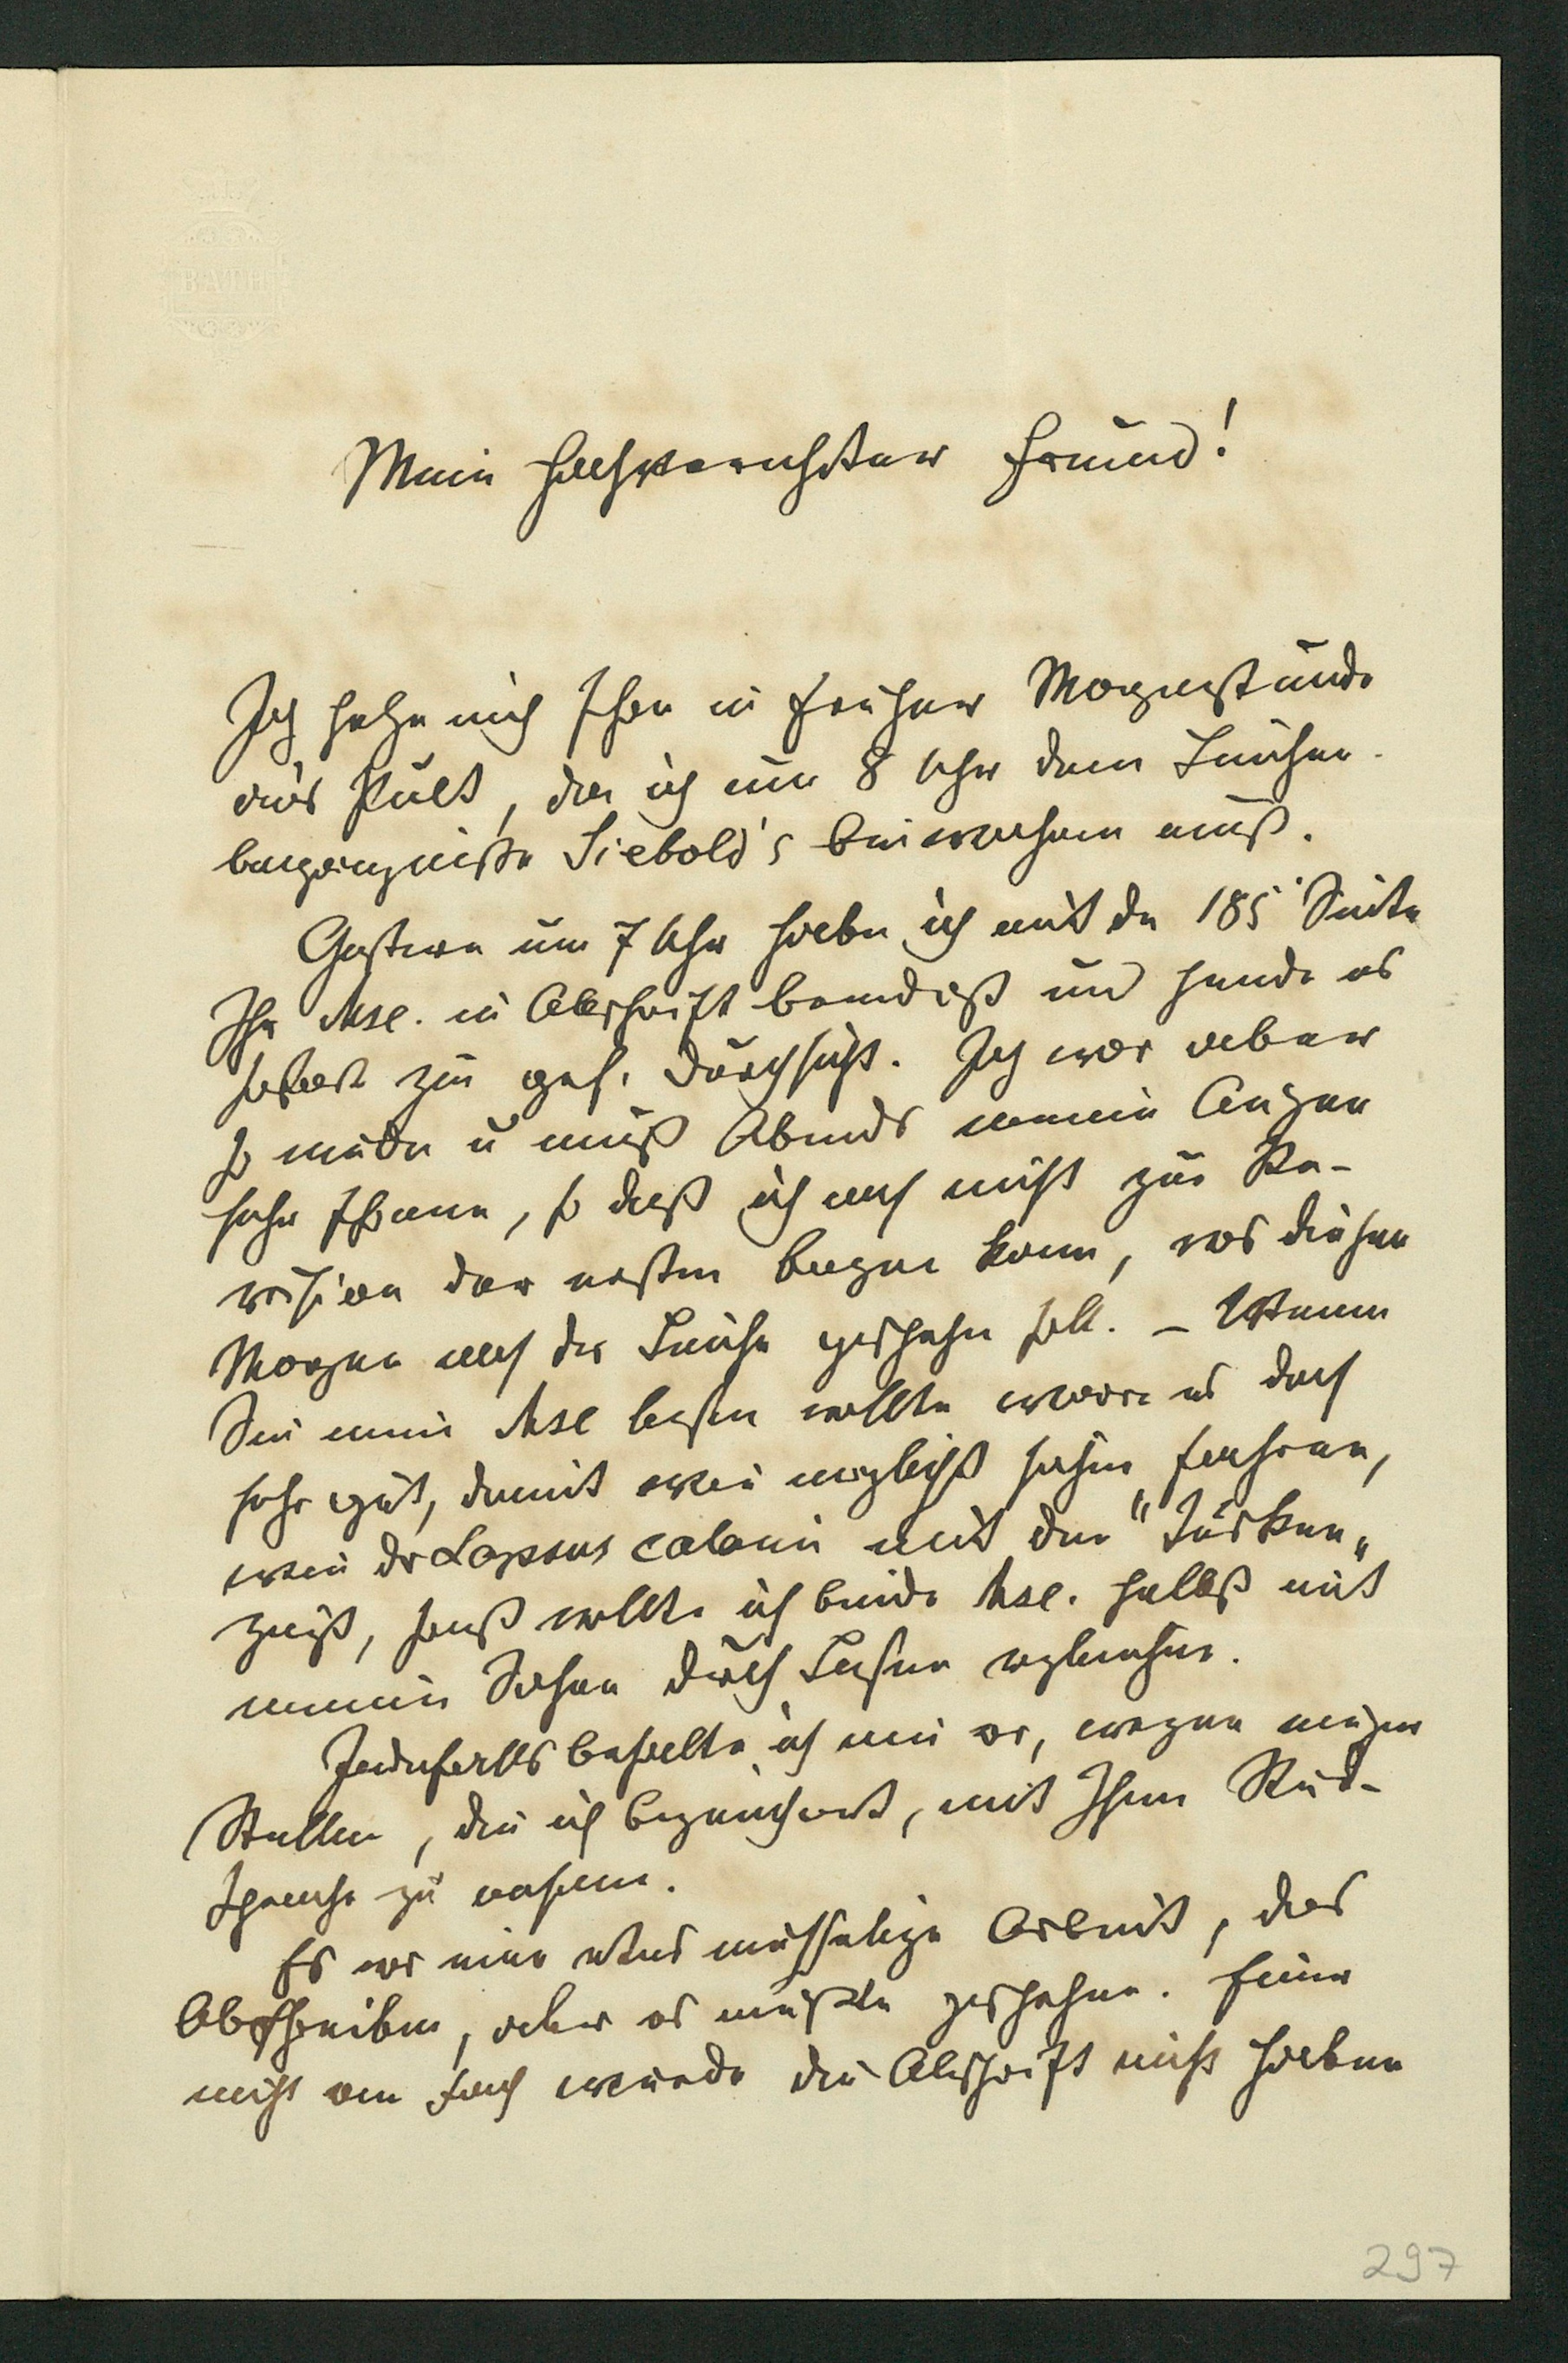 BATH
Mein hochverehrter Freund!
Ich setze mich schon in früher Morgenstunde
an's Pult, da ich um 8 Uhr dem Leichen-
begängnisse Siebold's beiwohnen muß.
Gestern um 7 Uhr habe ich mit der 185 Seite
Ihr Msc. in Abschrift beendigt und sende es
sofort zur gef. Durchsicht. Ich war aber
so müde u muß Abends meine Augen
sehr schonen, so daß ich noch nicht zur Re-
vision der ersten Bogen kam, was diesen
Morgen nach der Leiche geschehen soll. – Wenn
Sie mein Msc lesen wollten wäre es doch
sehr gut, damit wir möglichst sicher fahren,
wie der Lapsus calami mit den "Türken"
zeigt, sonst wollte ich beide Msc. selbst mit
meinem Sohne durch Lesen vergleichen.
Jedenfalls behalte ich mir vor, wegen einiger
Stellen, die ich bezeichnet, mit Ihnen Rück-
sprache zu nehmen.
Es war eine etwas mühselige Arbeit, das
Abschreiben, aber es mußte geschehen. Einer
nicht vom Fach würde die Abschrift nicht haben
297